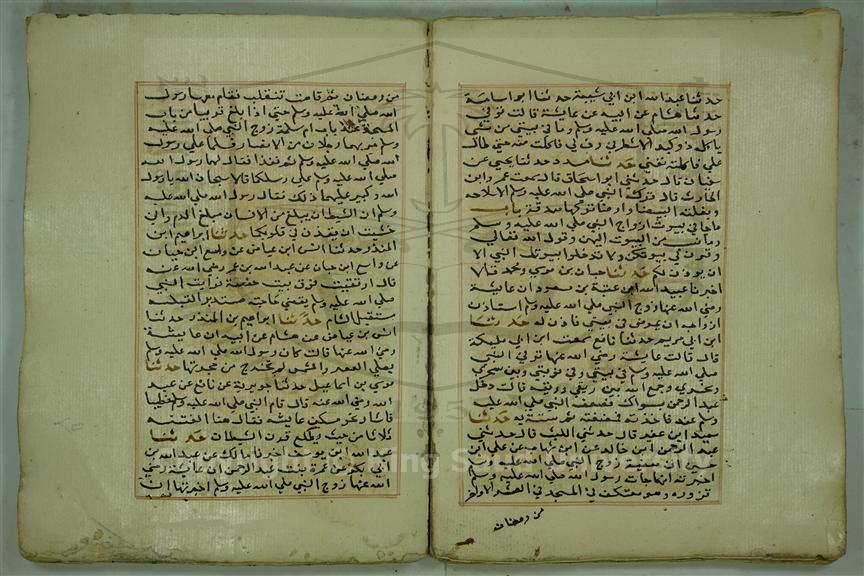 حدثنا عبد الله ابن ابي شيبة حدثنا ابو اسامة
حدثنا هشام عن ابيه عن عايشة قالت توفي
رسول الله صلي الله عليه وسلم وما في بيتي من شي
ياكله ذو كبد الا شطر في رف لي فاكلت منه حتي طال
علي فكلته ففني حدثنا مسدد حدثنا يحيي عن
سفيان قال حدثني ابو اسحاق قال سمعت عمرو ابن
الحارث قال ما ترك النبي صلي الله عليه وسلم الا سلاحه
وبغلته البيضا وارضا تركها صدقة باب
ما جا في بيوت ازواج النبي صلي الله عليه وسلم
وما نسب من البيوت اليهن وقول الله تعالي
وقرن في بيوتكن ولا تدخلوا بيوت النبي الا
ان يوذن لكم حدثنا حبان بن موسي ومحمد قالا
اخبرنا عبيد الله ابن عتبة بن مسعود ان عايشة
رضي الله عنها زوج النبي صلي الله عليه وسلم استاذن
ازواجه ان يمرض في بيتي فاذن له حدثنا
ابن ابي مريم حدثنا نافع سمعت ابن ابي مليكة
قال قالت عايشة رضي الله عنها توفي النبي
صلي الله عليه وسلم في بيتي وفي نوبتي وبين سحري
ونحري وجمع الله بين ريقي وريقه قالت دخل
عبد الرحمن بسواك فضعف النبي صلي الله عليه
وسلم عنه فاخذته فمضغته ثم سننته به حدثنا
سعيد ابن عفير قال حدثني الليث قال حدثني
عبد الرحمن ابن خالد عن ابن شهاب عن علي ابن
حسين ان صفية زوج النبي صلي الله عليه وسلم
اخبرته انها جات رسول الله صلي الله عليه وسلم
تزوره وهو معتكف في المسجد في العشر الاواخر
من رمضان
من رمضان ثم قامت تنقلب فقام معها رسول
الله صلي الله عليه وسلم حتي اذا بلغ قريبا من باب
المسجد عند باب ام سلمة زوج النبي صلي الله عليه
وسلم مر بهما رجلان من الانصار فسلما علي رسول
الله صلي الله عليه وسلم ثم نفذا فقال لهما رسول الله
صلي الله عليه وسلم علي رسلكما قالا سبحان الله يا رسول
الله وكبر عليهما ذلك فقال رسول الله صلي الله عليه
وسلم ان الشيطان يبلغ من الانسان مبلغ الدم واني
خشيت ان يقذف في قلوبكما حدثنا ابراهيم ابن
المنذر حدثنا انس ابن عياض عن واسع ابن حبان
عن واسع ابن حبان عن عبد الله بن عمر رضي الله عنه
قال ارتقيت فوق بيت حفصة فرايت النبي
صلي الله عليه وسلم يقضي حاجته مستدبر القبلة
مستقبل الشام حدثنا ابراهيم بن المنذر حدثنا
انس بن عياض عن هشام عن ابيه ان عايشة
رضي الله عنها قالت كان رسول الله صلي الله عليه وسلم
يصلي العصر والشمس لم تخرج من حجرتها حدثنا
موسي بن اسماعيل حدثنا جويرية عن نافع عن عبد
الله رضي الله عنه قال قام النبي صلي الله عليه وسلم خطيبا
فاشار نحو مسكن عايشة فقال هنا الفتنة
ثلاثا من حيث يطلع قرن الشيطان حدثنا
عبد الله ابن يوسف اخبرنا مالك عن عبد الله بن
ابي بكر عن عمرة بنت عبد الرحمن ان عايشة رضي
الله عنها زوج النبي صلي الله عليه وسلم اخبرتها ان